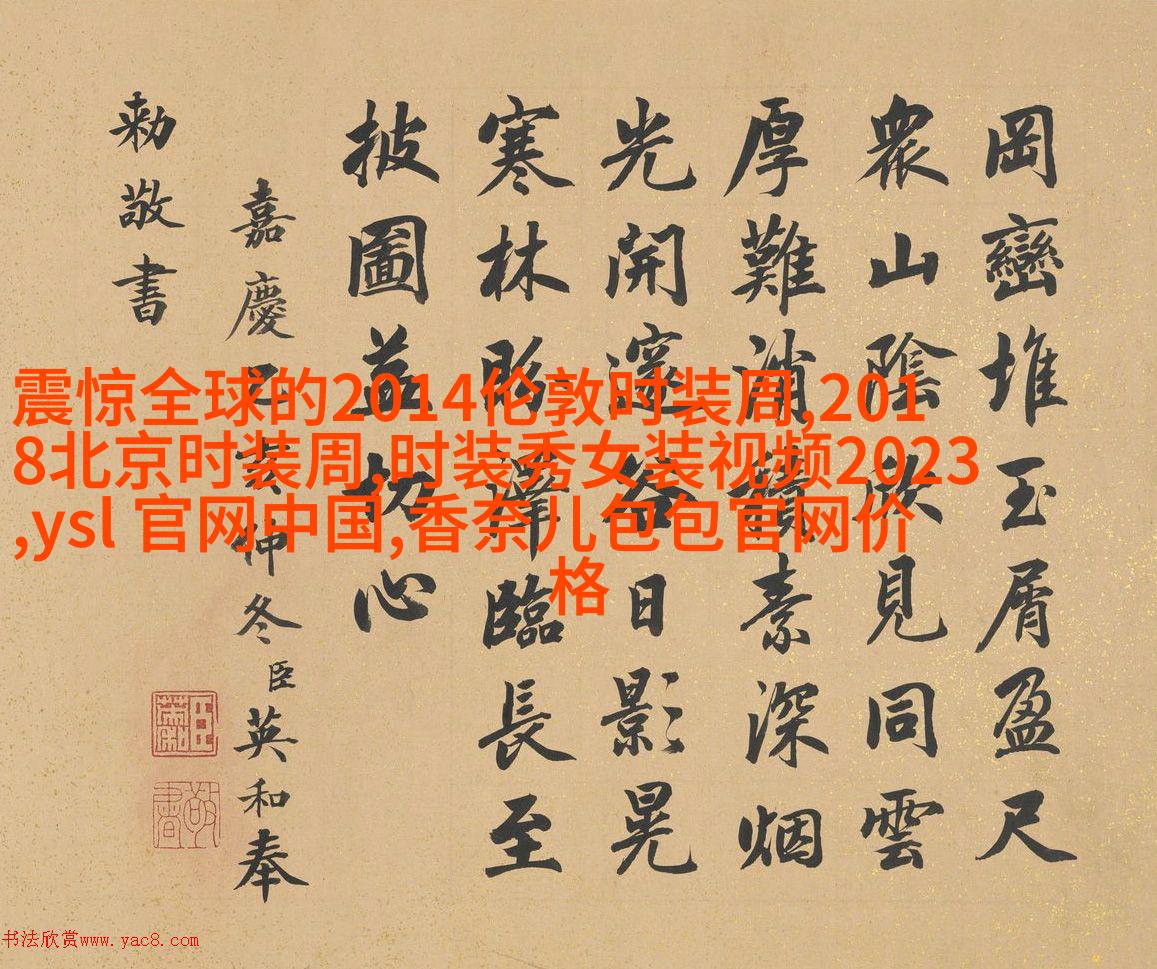 岡巒堆玉屑盈尺
衆山陰見同雲
厚難消積素深烟
光開邃谷日影晃
寒林臨長至
披圖益切心
嘉慶仲冬臣英和奉
勅敬書
震惊全球的2014伦敦时装周,201
8北京时装周,时装秀女装视频2023
,ysl 官网中国,香奈儿包包官网价
格
敬書
书法欣赏www.yac8.com